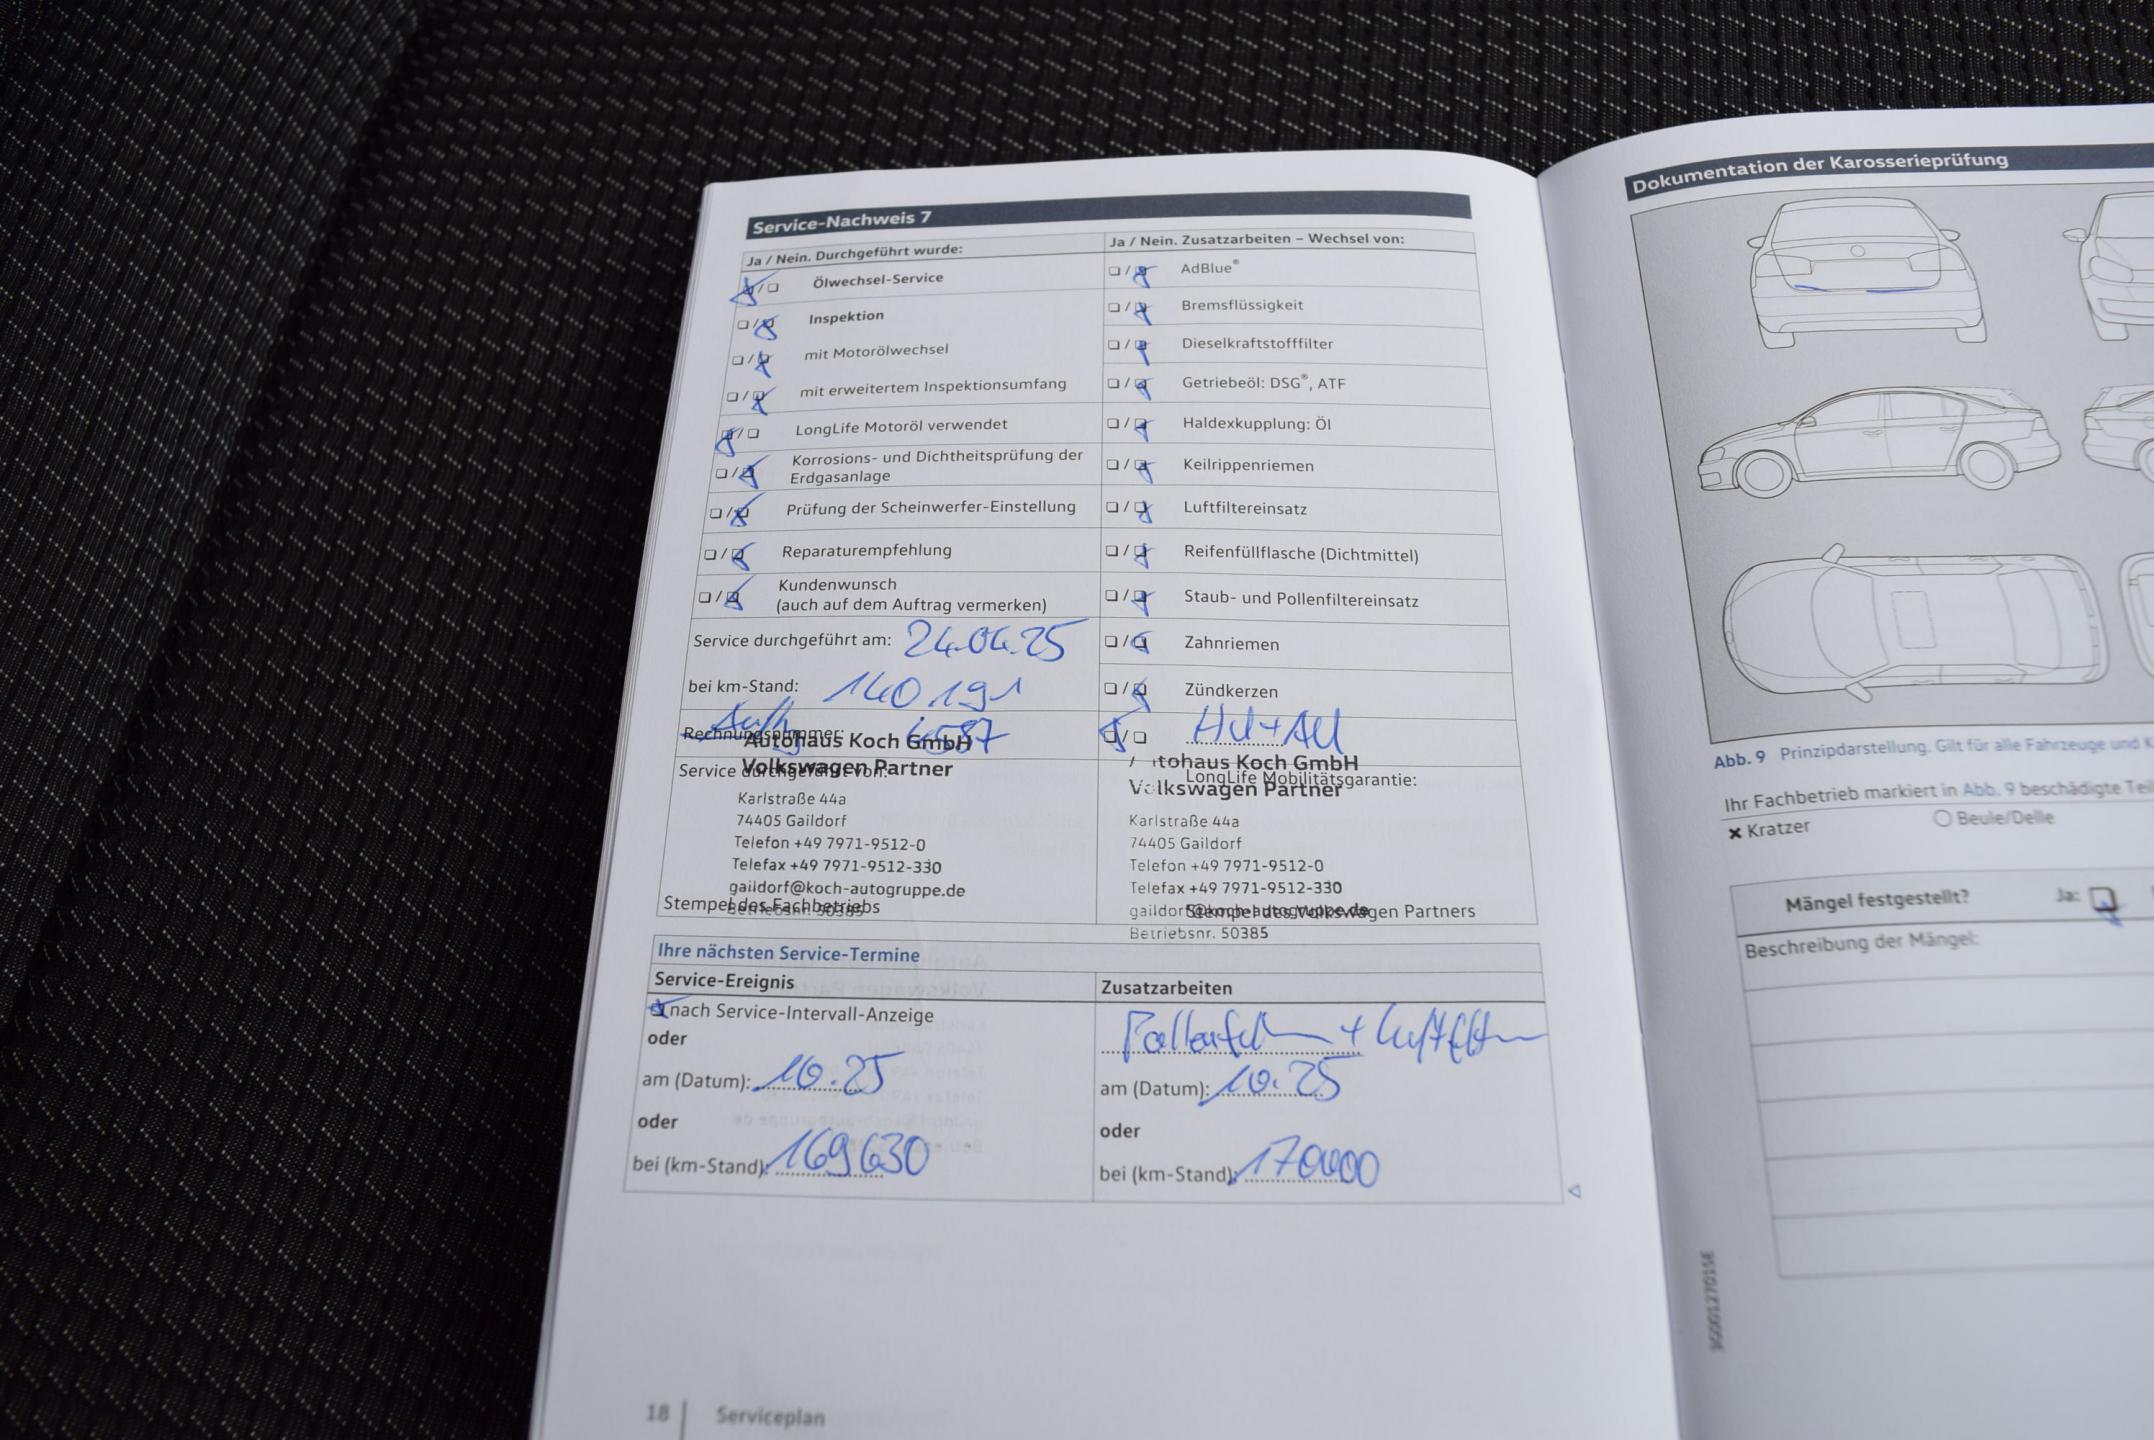 Service-Nachweis 7
Ja / Nein. Durchgeführt wurde:
Ölwechsel-Service
Inspektion
mit Motorölwechsel
mit erweitertem Inspektionsumfang
LongLife Motoröl verwendet
Korrosions- und Dichtheitsprüfung der
Erdgasanlage
Prüfung der Scheinwerfer-Einstellung
Reparaturempfehlung
Kundenwunsch
(auch auf dem Auftrag vermerken)
Service durchgeführt am: 24.04.25
bei km-Stand: 140 191
Rechnungsnummer:
Service durchgeführt von:
Autohaus Koch GmbH
Volkswagen Partner
Karlstraße 44a
74405 Gaildorf
Telefon +49 7971-9512-0
Telefax +49 7971-9512-330
gaildorf@koch-autogruppe.de
Betriebsnr. 50385
Stempel des Fachbetriebs
Ja / Nein. Zusatzarbeiten – Wechsel von:
AdBlue®
Bremsflüssigkeit
Dieselkraftstofffilter
Getriebeöl: DSG®, ATF
Haldexkupplung: Öl
Keilrippenriemen
Luftfiltereinsatz
Reifenfüllflasche (Dichtmittel)
Staub- und Pollenfiltereinsatz
Zahnriemen
Zündkerzen
HU+AU
LongLife Mobilitätsgarantie:
Autohaus Koch GmbH
Volkswagen Partner
Karlstraße 44a
74405 Gaildorf
Telefon +49 7971-9512-0
Telefax +49 7971-9512-330
gaildorf@koch-autogruppe.de
Betriebsnr. 50385
Stempel des Volkswagen Partners
Ihre nächsten Service-Termine
Service-Ereignis
nach Service-Intervall-Anzeige
oder
am (Datum): 10.25
oder
bei (km-Stand): 169630
Zusatzarbeiten
Pollenfilter + Luftfilter
am (Datum): 10.25
oder
bei (km-Stand): 170000
18 Serviceplan
Dokumentation der Karosserieprüfung
Abb. 9 Prinzipdarstellung. Gilt für alle Fahrzeuge und
Ihr Fachbetrieb markiert in Abb. 9 beschädigte
Kratzer
Beule/Delle
Mängel festgestellt? Ja:
Beschreibung der Mängel: